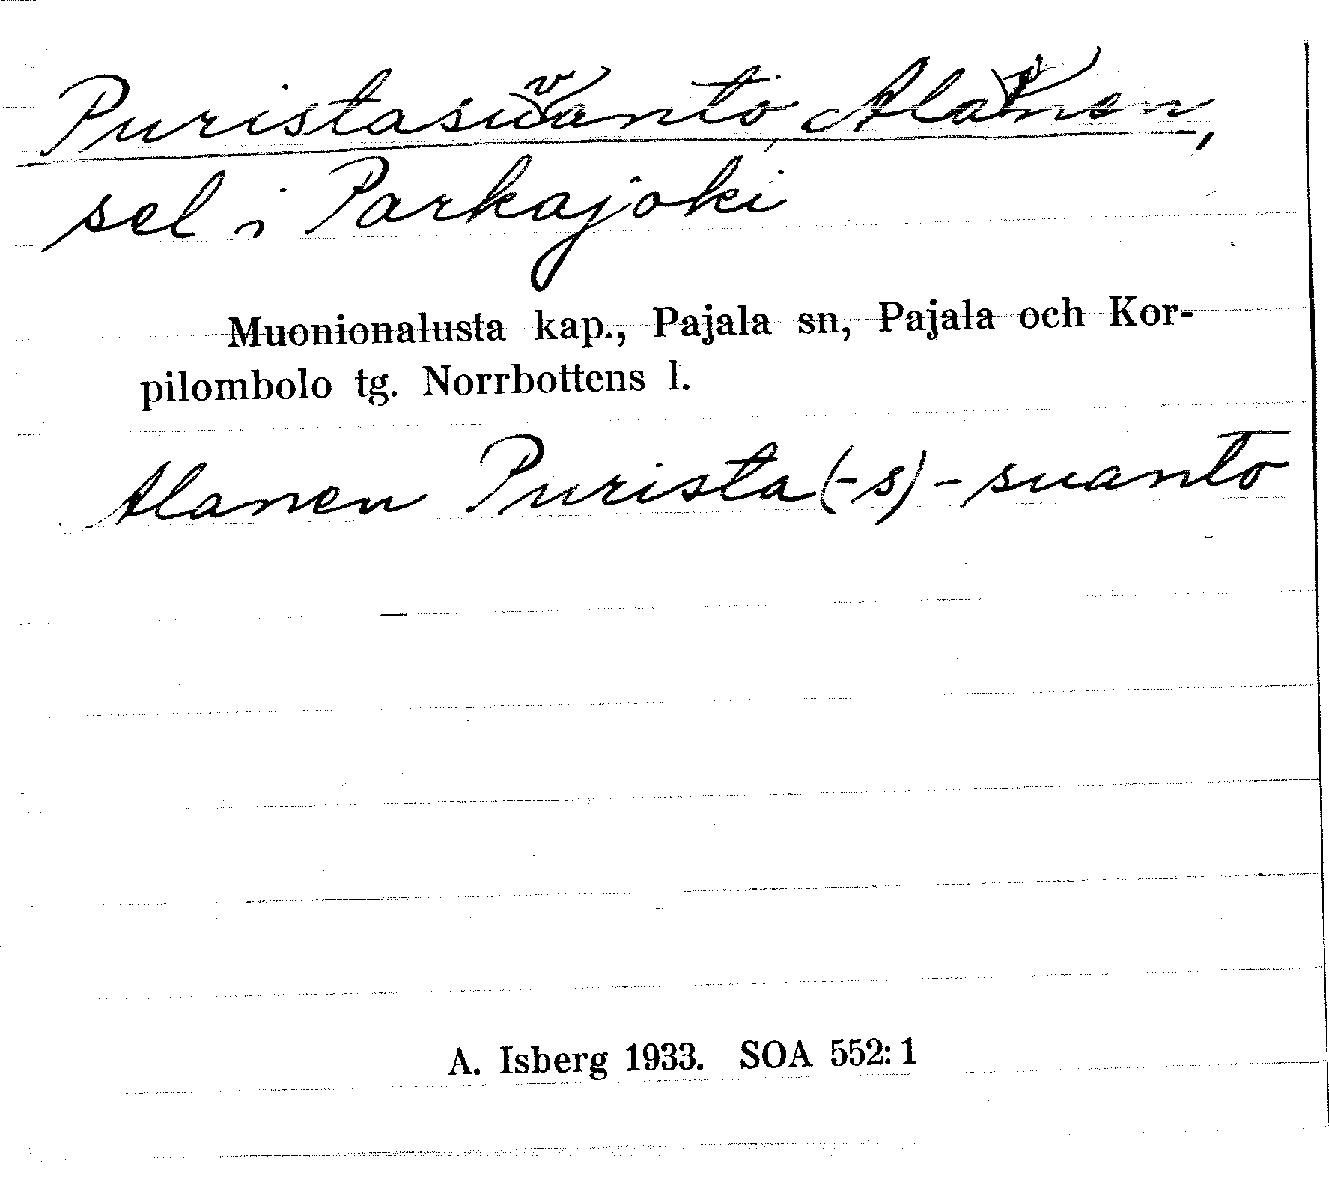 Puristasuvanto, Alanen,
sel i Parkajoki
Muonionalusta kap., Pajala sn, Pajala och Kor-
pilombolo tg. Norrbottens l.
Alanen Purista(-s)-suanto
A. Isberg 1933. SOA 552:1